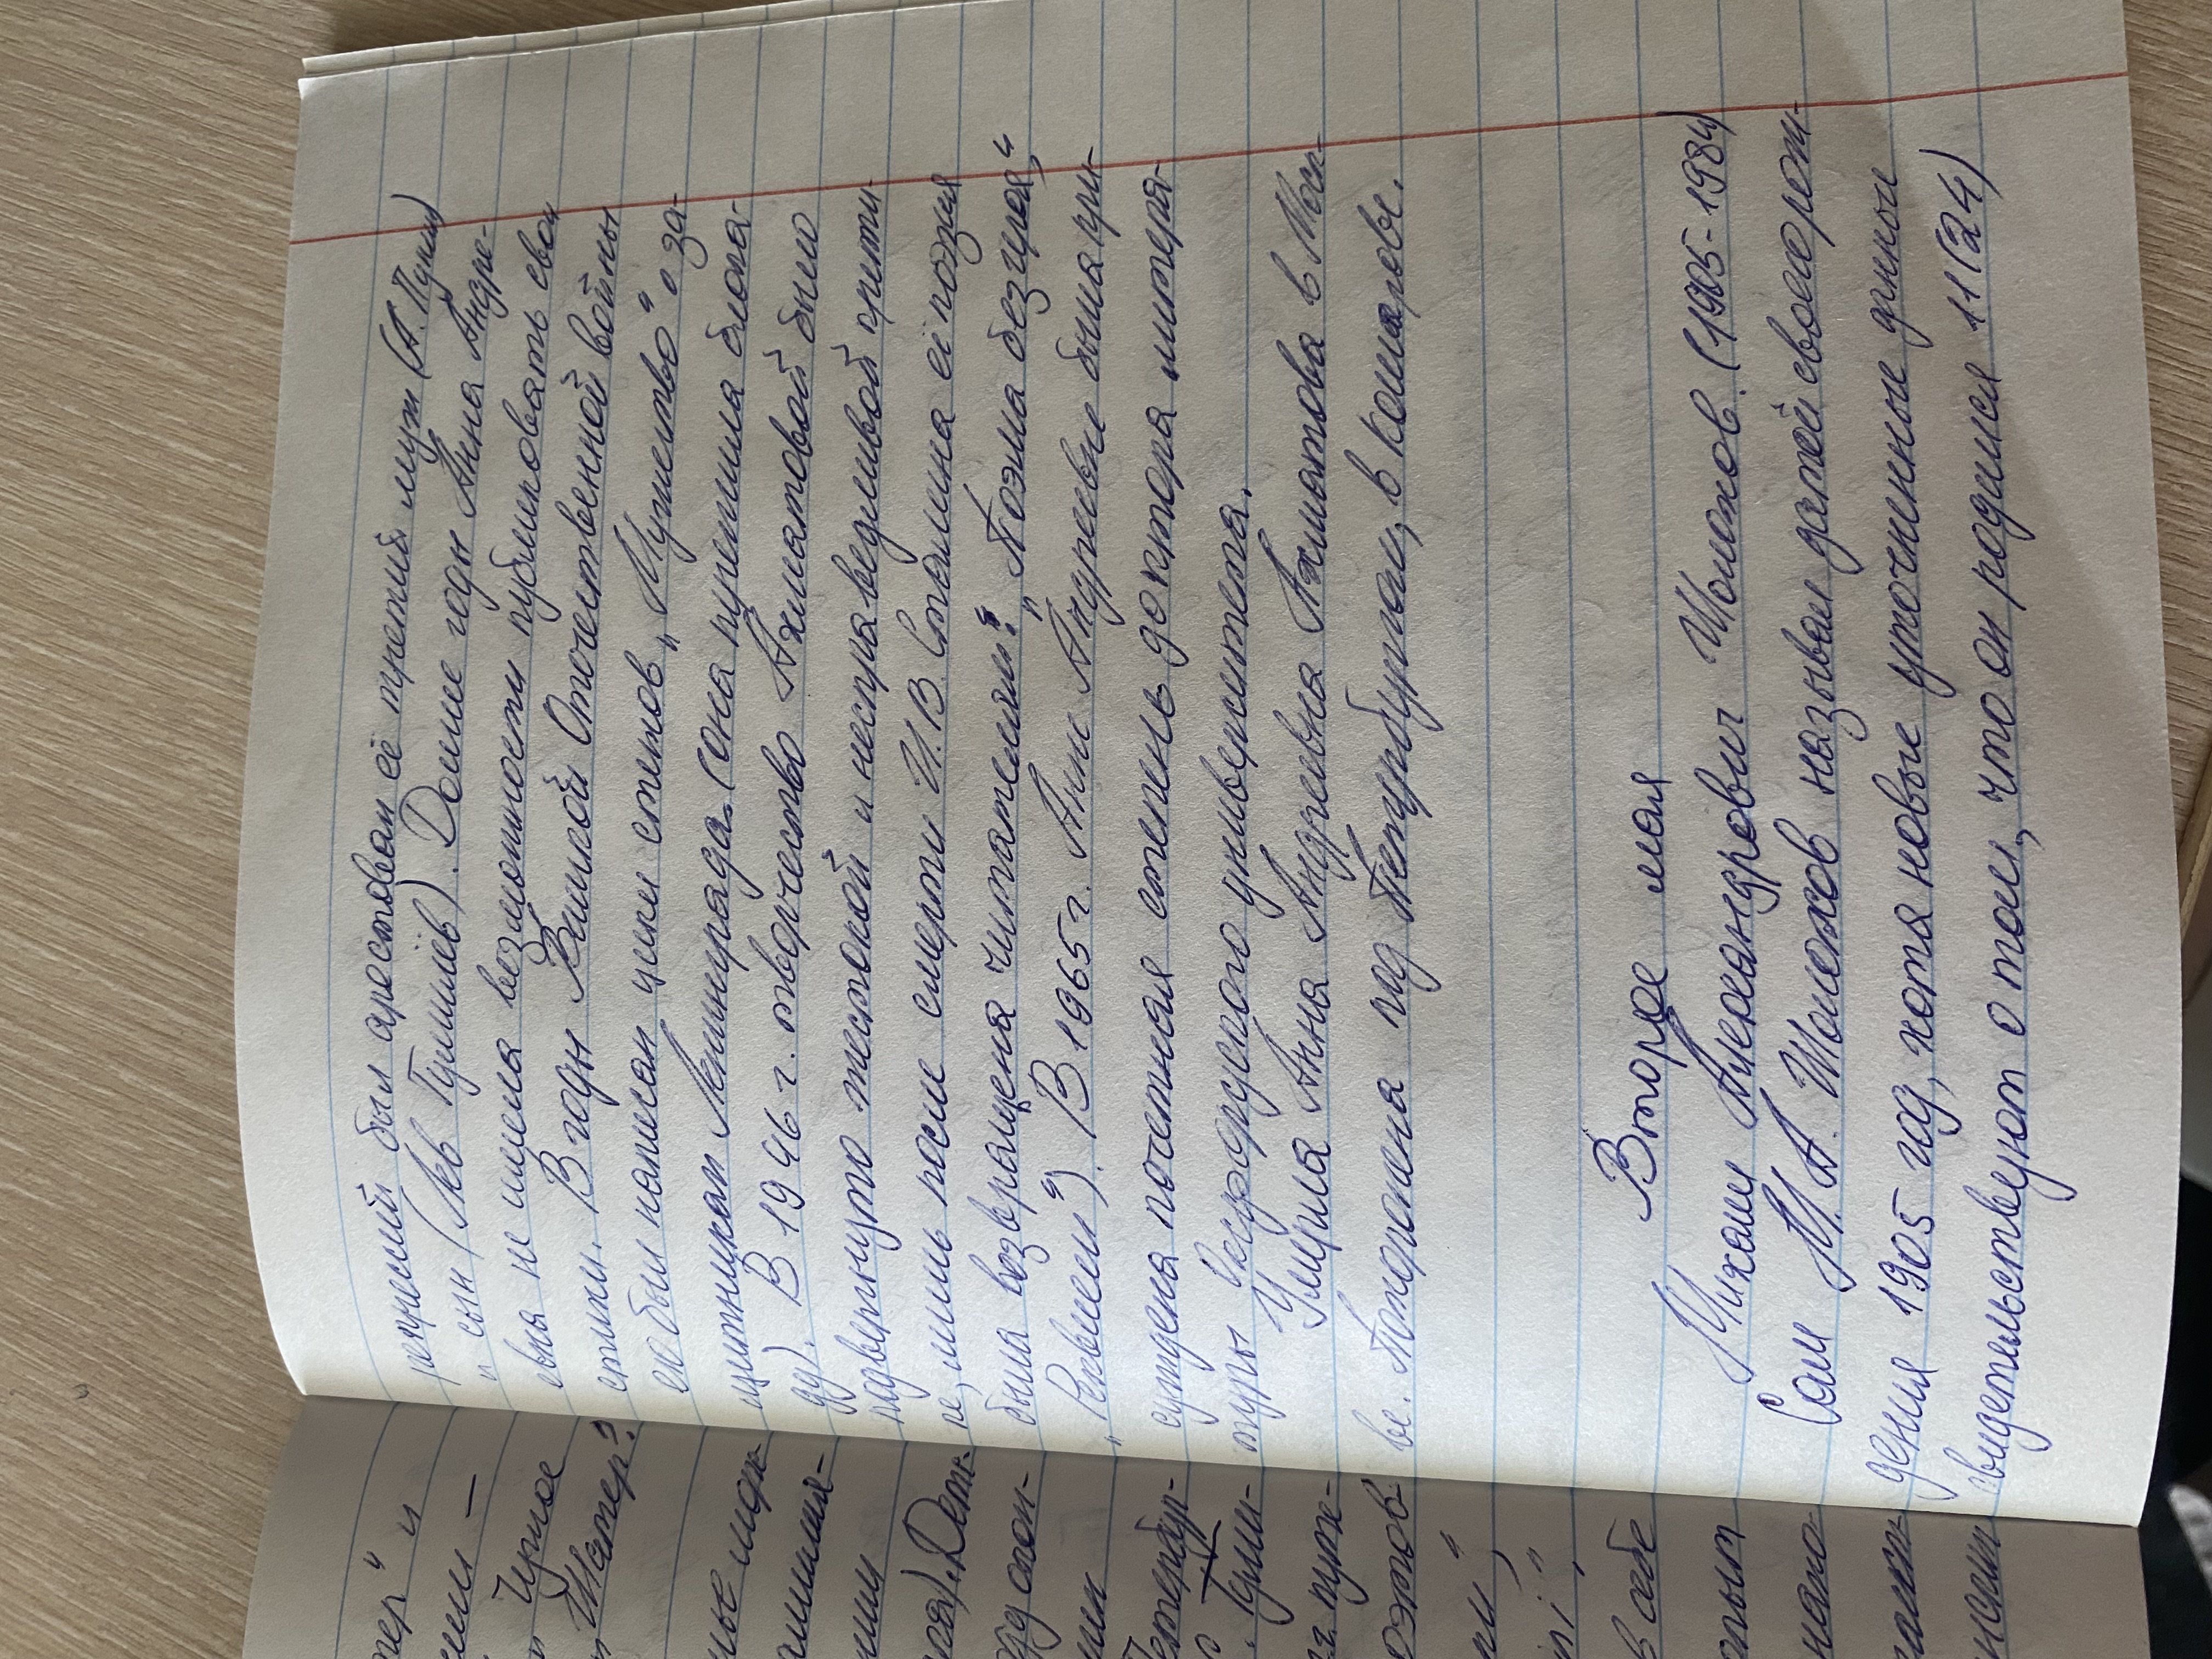 репрессий был арестован её третий муж (А. Пунин)
и сын (Лев Гумилёв). Долгие годы Анна Андре-
евна не имела возможности публиковать свои
стихи. В годы Великой Отечественной войны
ею был написан цикл стихов „Мужество" о за-
щитниках Ленинграда (она пережила блока-
ду). В 1946 г. творчество Ахматовой было
подвергнуто жестокой и несправедливой крити-
ке, лишь после смерти И.В. Сталина её поэзия
была возвращена читателям: „Поэма без героя",
„Реквием"). В 1965 г. Анне Андреевне была при-
суждена почетная степень доктора литера-
туры Оксфордского университета.
Умерла Анна Андреевна Ахматова в Моск-
ве. Похоронена под Петербургом, в Комарове.
Второе мая
Михаил Александрович Шолохов. (1905-1984)
Сам М.А. Шолохов называл датой своего рож-
дения 1905 год, хотя новые уточненные данные
свидетельствуют о том, что он родился 11(24)
тер" и
или –
Чужое
Шатер?
ные мож-
Дет-
од
Петербур-
г. Гуми-
г. путе-
оэтов
ни",
в себе
ным
наго-